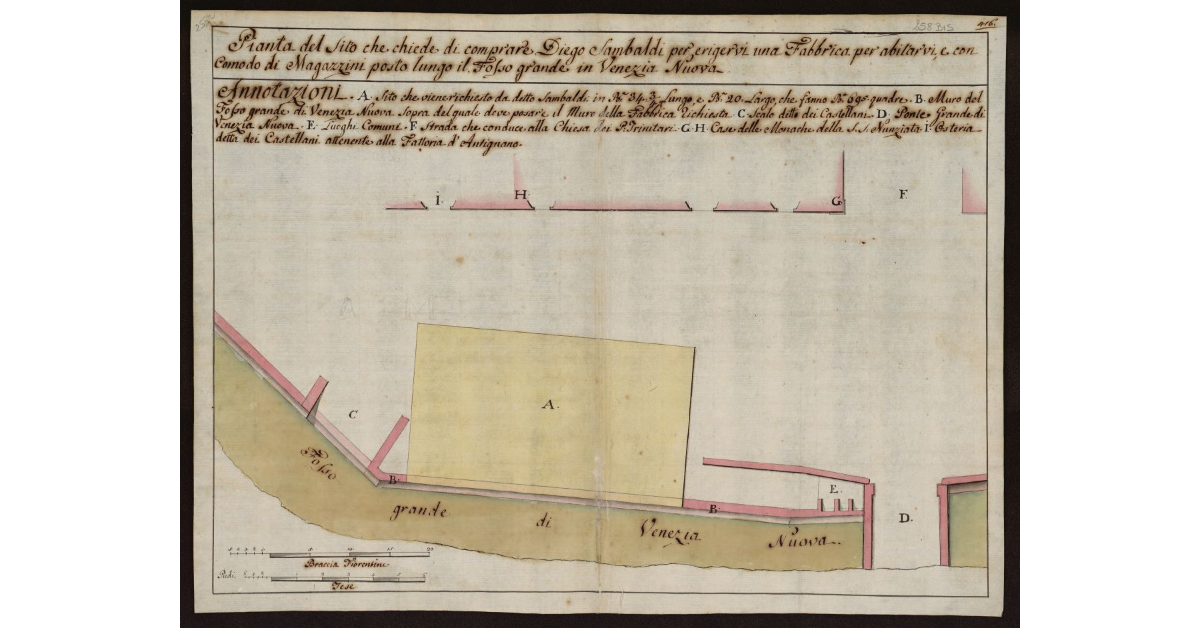 258 BIS
416.
Pianta del Sito che chiede di comprare Diego Sambaldi per erigervi una Fabbrica per abitarvi, e con
Comodo di Magazzini posto lungo il Fosso grande in Venezia Nuova
Annotazioni. A. Sito che viene richiesto da detto Sambaldi in Br. 34. Lungo, e Br. 20 Largo, che fanno Br. 695 quadre. B. Muro del
Fosso grande di Venezia Nuova sopra del quale deve posare il Muro della Fabbrica richiesta. C. Scalo detto dei Castellani. D. Ponte Grande di
Venezia Nuova. E. Luoghi Comuni. F. Strada che conduce alla Chiesa dei P. Trinitari. G. H. Case delle Monache della S.S. Nunziata I. Osteria
detta dei Castellani attenente alla Fattoria d'Antignano.
I.
H
G
F.
A.
C
Fosso
B.
grande
di
B.
Venezia
E.
Nuova
D.
5
10
15
20
Braccia Fiorentine
Piedi
Tese